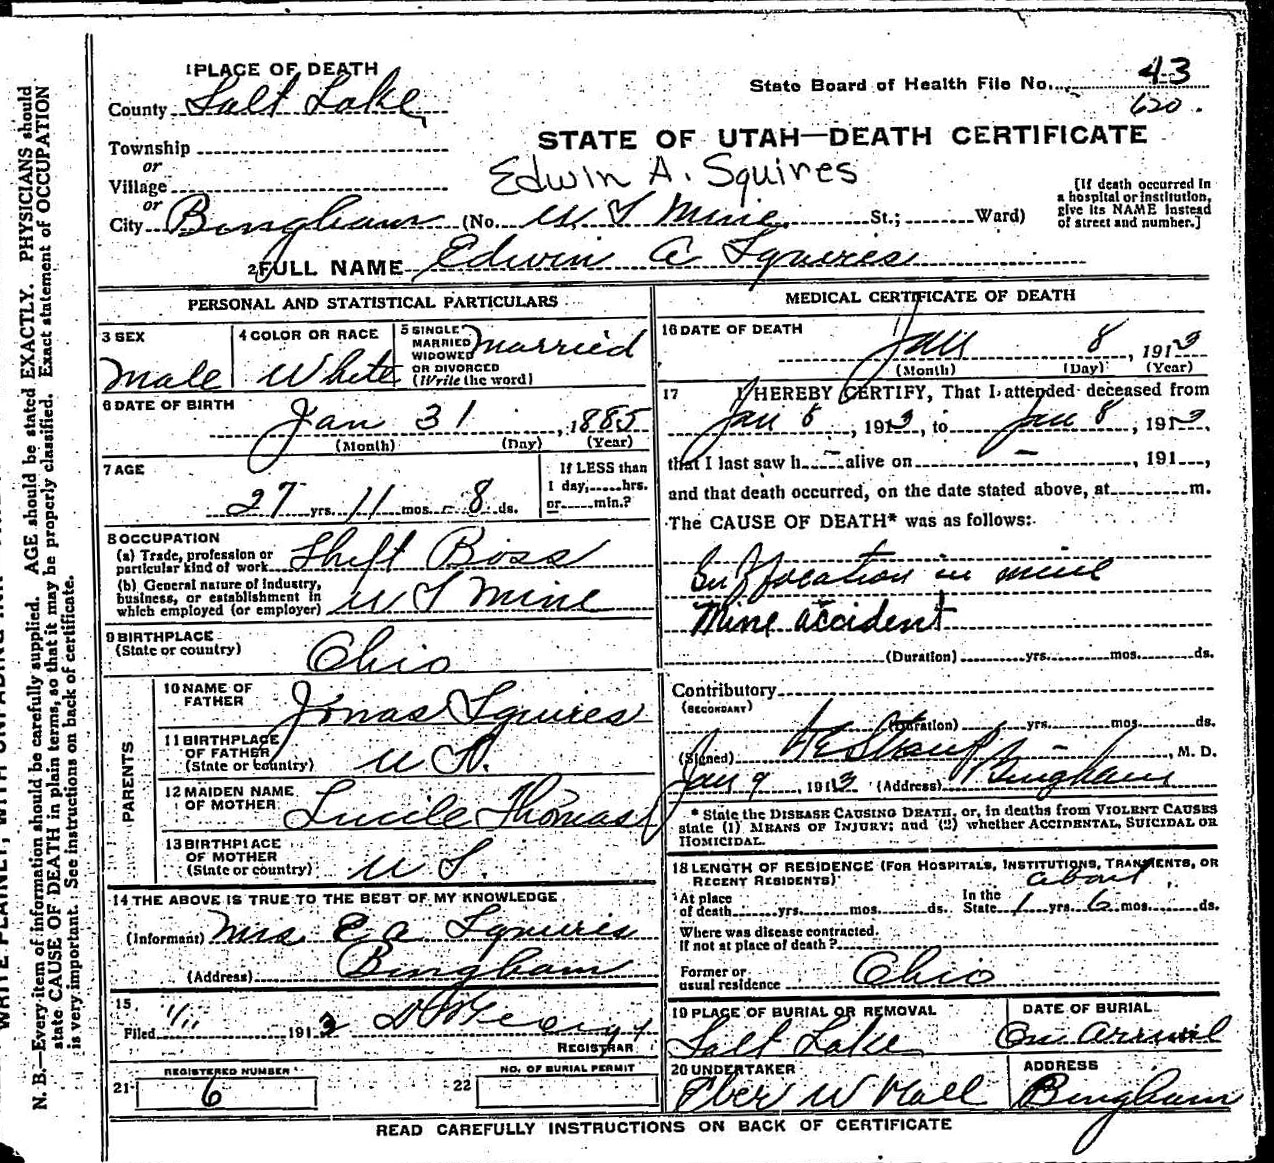 1 PLACE OF DEATH
County Salt Lake
State Board of Health File No. 43
620.
Township
STATE OF UTAH—DEATH CERTIFICATE
or
Village
Edwin A. Squires
or
City Bingham (No. U S Mine St.; Ward)
[If death occurred in
a hospital or institution,
give its NAME instead
of street and number.]
2 FULL NAME Edwin A Squires
PERSONAL AND STATISTICAL PARTICULARS
3 SEX
Male
4 COLOR OR RACE
White
5 SINGLE
MARRIED
WIDOWED
OR DIVORCED
(Write the word)
Married
6 DATE OF BIRTH
Jan 31, 1885
(Month) (Day) (Year)
7 AGE
27 yrs. 11 mos. 8 ds.
If LESS than
1 day,.....hrs.
or......min.?
8 OCCUPATION
(a) Trade, profession or
particular kind of work Shift Boss
(b) General nature of industry,
business, or establishment in
which employed (or employer) U S Mine
9 BIRTHPLACE
(State or country)
Ohio
PARENTS
10 NAME OF
FATHER
Jonas Squires
11 BIRTHPLACE
OF FATHER
(State or country)
U S.
12 MAIDEN NAME
OF MOTHER
Lucile Thomas
13 BIRTHPLACE
OF MOTHER
(State or country)
U S.
14 THE ABOVE IS TRUE TO THE BEST OF MY KNOWLEDGE
(Informant) Mrs E A Squires
(Address) Bingham
15
Filed 1/11 1913
REGISTRAR
REGISTERED NUMBER
21 6
NO. OF BURIAL PERMIT
22
MEDICAL CERTIFICATE OF DEATH
16 DATE OF DEATH
Jan 8, 1913
(Month) (Day) (Year)
17 I HEREBY CERTIFY, That I attended deceased from
Jan 8, 1913, to Jan 8, 1913,
that I last saw h — alive on —, 191...,
and that death occurred, on the date stated above, at.........m.
The CAUSE OF DEATH* was as follows:
Suffocation in mine
Mine accident
(Duration).........yrs.........mos.........ds.
Contributory
(SECONDARY)
(Duration) yrs. mos. ds.
(Signed) , M. D.
Jan 9, 1913 (Address) Bingham
* State the DISEASE CAUSING DEATH, or, in deaths from VIOLENT CAUSES
state (1) MEANS OF INJURY; and (2) whether ACCIDENTAL, SUICIDAL OR
HOMICIDAL.
18 LENGTH OF RESIDENCE (FOR HOSPITALS, INSTITUTIONS, TRANSIENTS, OR
RECENT RESIDENTS)
about
At place
of death.......yrs.......mos.......ds.
In the
State 1 yrs. 6 mos. ds.
Where was disease contracted,
If not at place of death?
Former or
usual residence Ohio
19 PLACE OF BURIAL OR REMOVAL
Salt Lake
DATE OF BURIAL
On arrival
20 UNDERTAKER
Eber W Hall
ADDRESS
Bingham
READ CAREFULLY INSTRUCTIONS ON BACK OF CERTIFICATE
N. B.—Every item of information should be carefully supplied. AGE should be stated EXACTLY. PHYSICIANS should
state CAUSE OF DEATH in plain terms, so that it may be properly classified. Exact statement of OCCUPATION
is very important. See instructions on back of certificate.